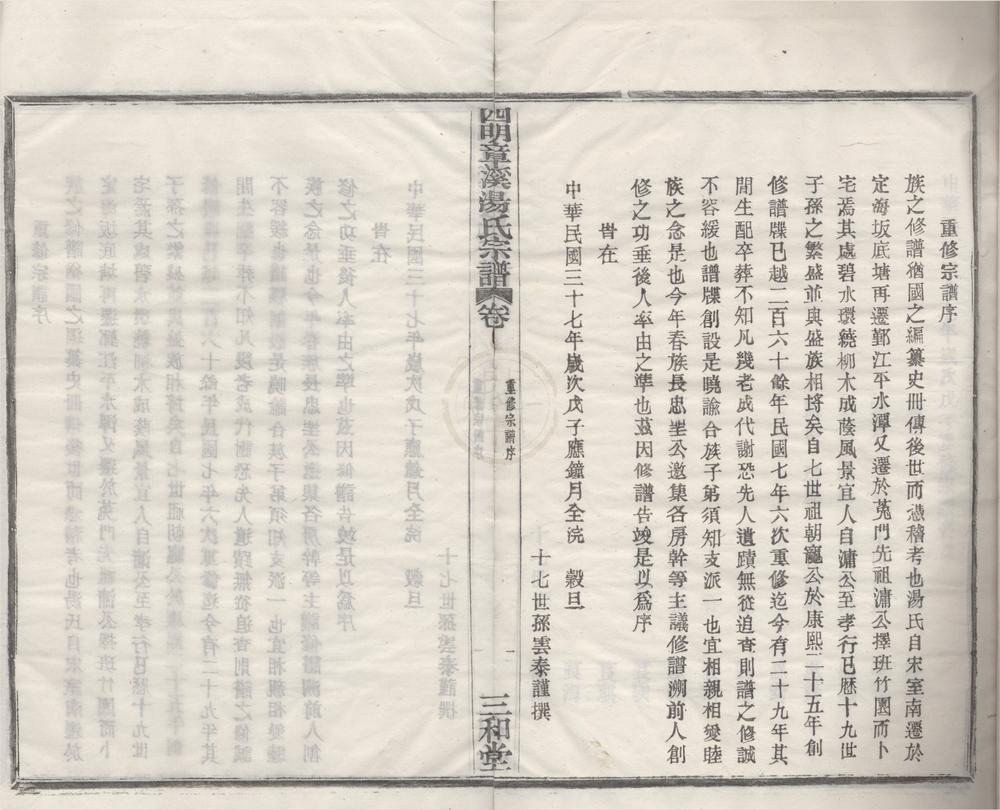 重修宗譜序
族之修譜猶國之編纂史冊傳後世而憑稽考也湯氏自宋室南遷於
定海坂底塘再遷鄞江平水潭又遷於蒐門先祖溯公擇班竹園而卜
宅焉其處碧水環繞柳木成蔭風景宜人自溯公至孝行已歷十九世
子孫之繁盛並與盛族相埒矣自七世祖朝寵公於康熙二十五年創
修譜牒已越二百六十餘年民國七年六次重修迄今有二十九年其
間生配卒葬不知凡幾老成代謝恐先人遺蹟無從追查則譜之修誠
不容緩也譜牒創設是曉諭合族子弟須知支派一也宜相親相愛睦
族之念是也今年春族長忠公邀集各房幹等主議修譜溯前人創
修之功垂後人率由之準也茲因修譜告竣是以爲序
旹在
中華民國三十七年歲次戊子應鐘月全浣 穀旦
十七世孫雲泰謹撰
四明章溪湯氏宗譜 卷
重修宗譜序
一
三和堂